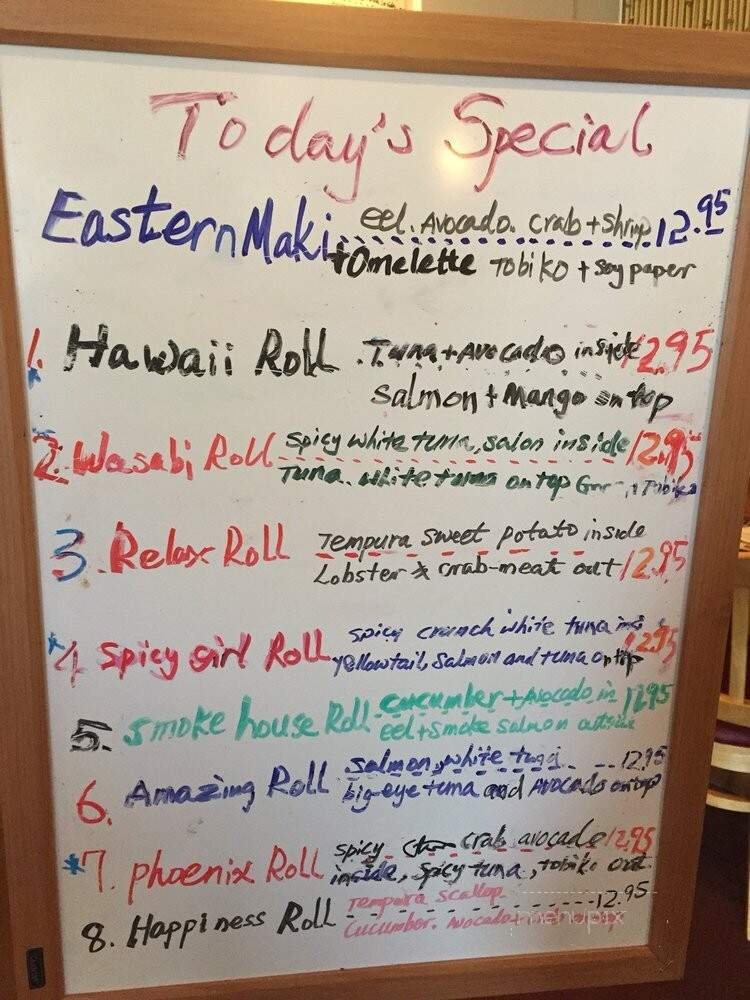 Today's Special
Eastern Maki eel. Avocado. crab + shrip 12.95
+ Omelette Tobiko + Soy paper
1. Hawaii Roll Tuna + Avocado inside 12.95
Salmon + Mango on top
2. Wasabi Roll spicy white tuna, salon inside 12.95
Tuna. white tuna on top
3. Relax Roll Tempura sweet potato inside
Lobster & crab-meat out 12.95
*4 Spicy girl Roll spicy crunch white tuna 12.95
yellowtail, salmon and tuna on top
5. Smoke house Roll cucumber + Avocado in 11.95
eel + Smoke salmon outside
6. Amazing Roll salmon, white tuna 12.95
big-eye tuna and Avocado on top
*7. phoenix Roll spicy crab avocado 12.95
inside, spicy tuna, tobiko out
8. Happiness Roll Tempura scallop 12.95
Cucumber. Avocado
menupix